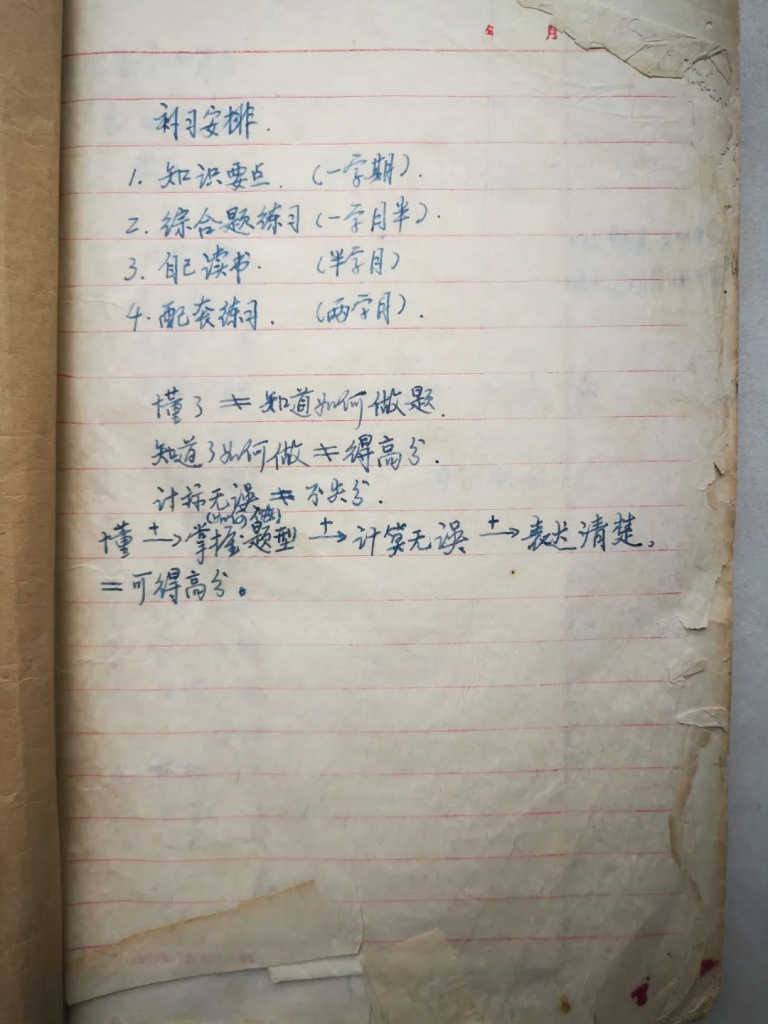 年 月
补习安排.
1. 知识要点. (一学期).
2. 综合题练习 (一字月半).
3. 自己读书. (半字月)
4. 配套练习. (两字月).
懂了 ≠ 知道如何做题.
知道了如何做 ≠ 得高分.
计标无误 ≠ 不失分.
懂 + → 掌握题型 + → 计算无误 + → 表达清楚。
= 可得高分。